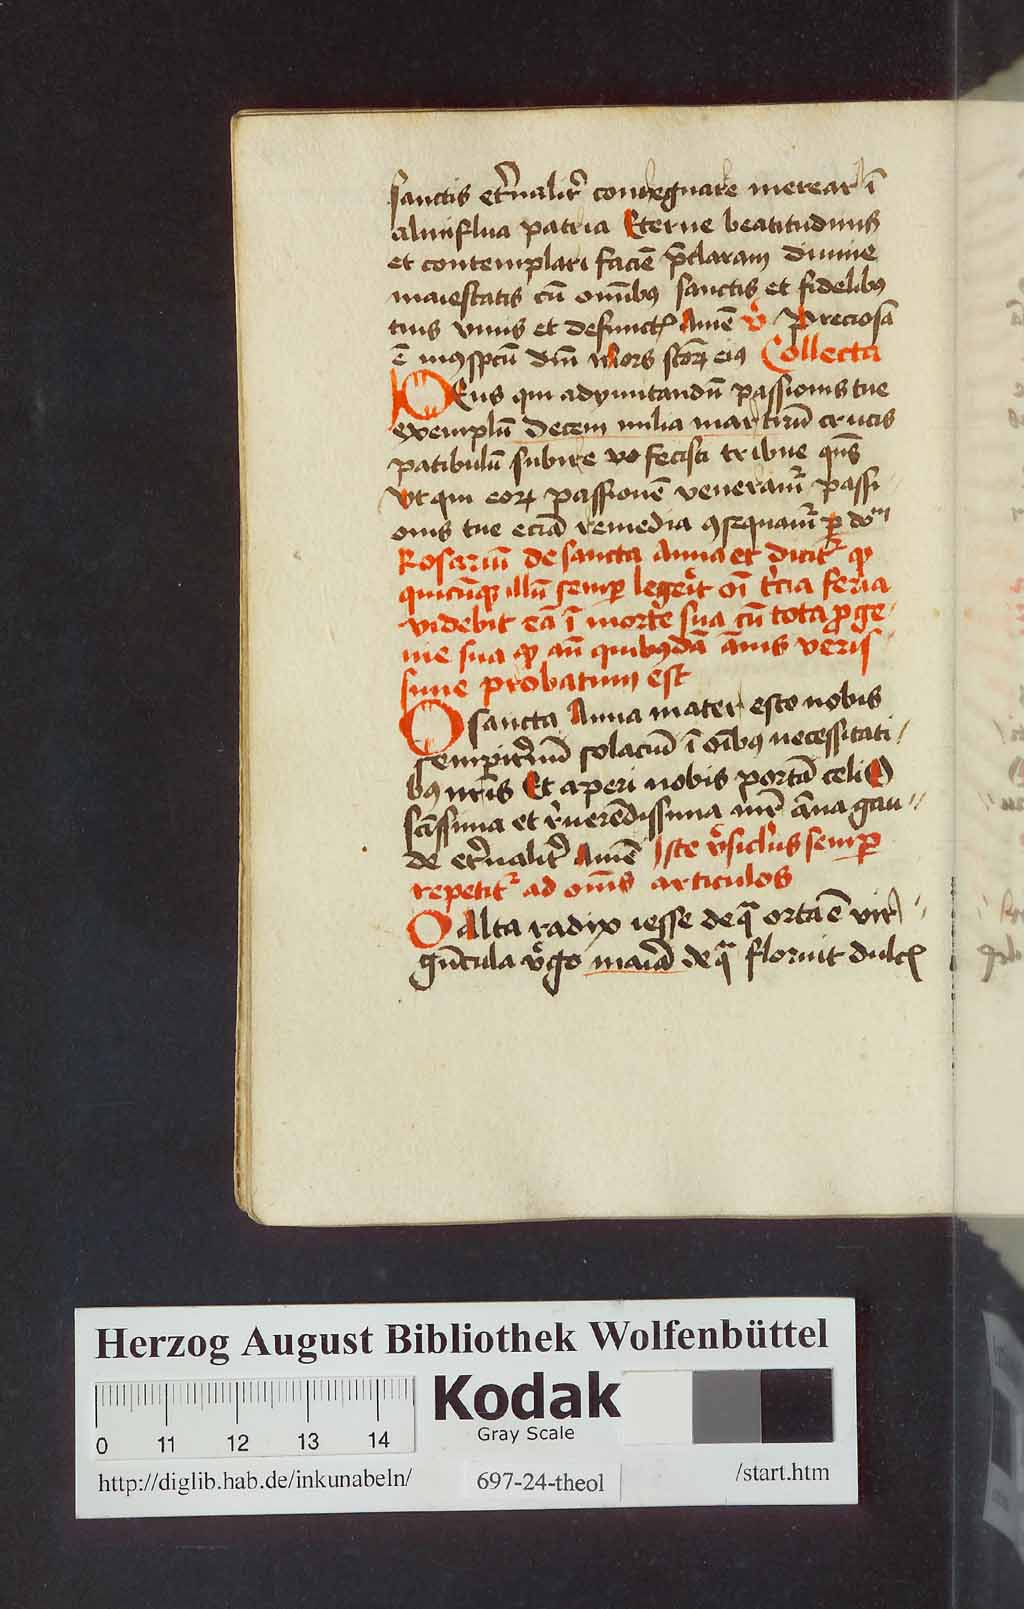 sanctis et̓nalit̓ conregnare merear ī
almiflua patria Eterne beatitudinis
et contemplari faciē p̄claram diuine
maiestatis cū om̄ibꝰ sanctis et fidelibꝰ
tuis viuis et defunctꝭ Amē v̓ Preciosa
ē ī ꝯspectū dn̄i Mors sctōꝝ eiꝰ Collecta
Deus qui ad ymitandū passionis tue
exemplū decem milia martirū crucis
patibulū subire vo fecisti tribue qs̄
vt qui eoꝝ passionē veneramꝰ passi
onis tue eciā remedia ꝯsequamꝰ ꝑ do
Rosariū de sancta Anna et dicit᷑ ꝙ
quicūqꝫ illū semꝑ leger̓it oī t̓cia feria
videbit eā ī morte sua cū tota ꝓge
nie sua ꝙ an̄ quibꝰdā ānis veris
sime probatum est
O sancta Anna mater esto nobis
sempit̓nū solaciū ī oībꝰ necessitati
bꝰ nr̄is Et aperi nobis portā celi O
sctīssima et reuerēdissima mr̄ āna gau
de et̓nalit̓ Amē Iste v̓siculus semꝑ
repetit᷑ ad om̄s articulos
O Alta radix iesse de qͣ orta ē vir
gūcula v̓go maria de qͣ floruit dulcꝭ
Herzog August Bibliothek Wolfenbüttel
Kodak
Gray Scale
0 11 12 13 14
http://diglib.hab.de/inkunabeln/ 697-24-theol /start.htm